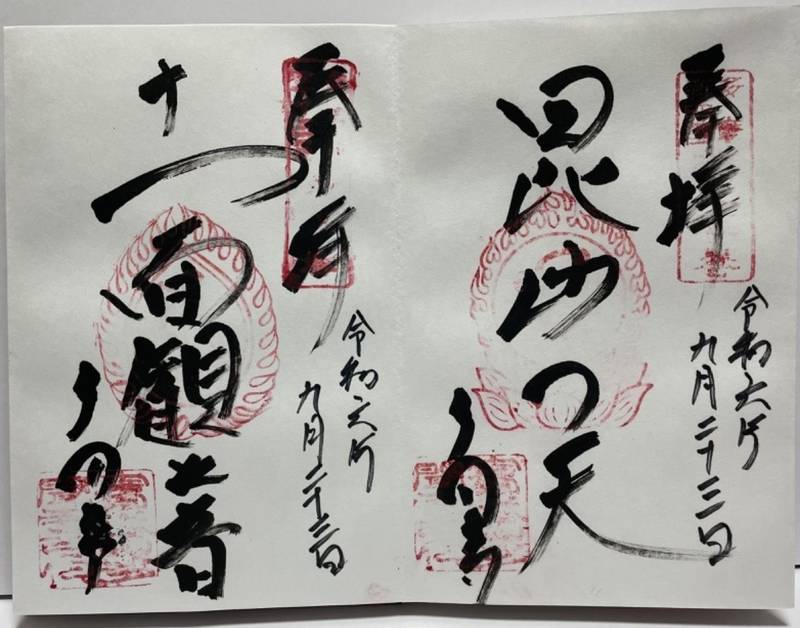 奉拝
令和六年
九月二十三日
毘沙門天
奉拝
令和六年
九月二十三日
十一面観音